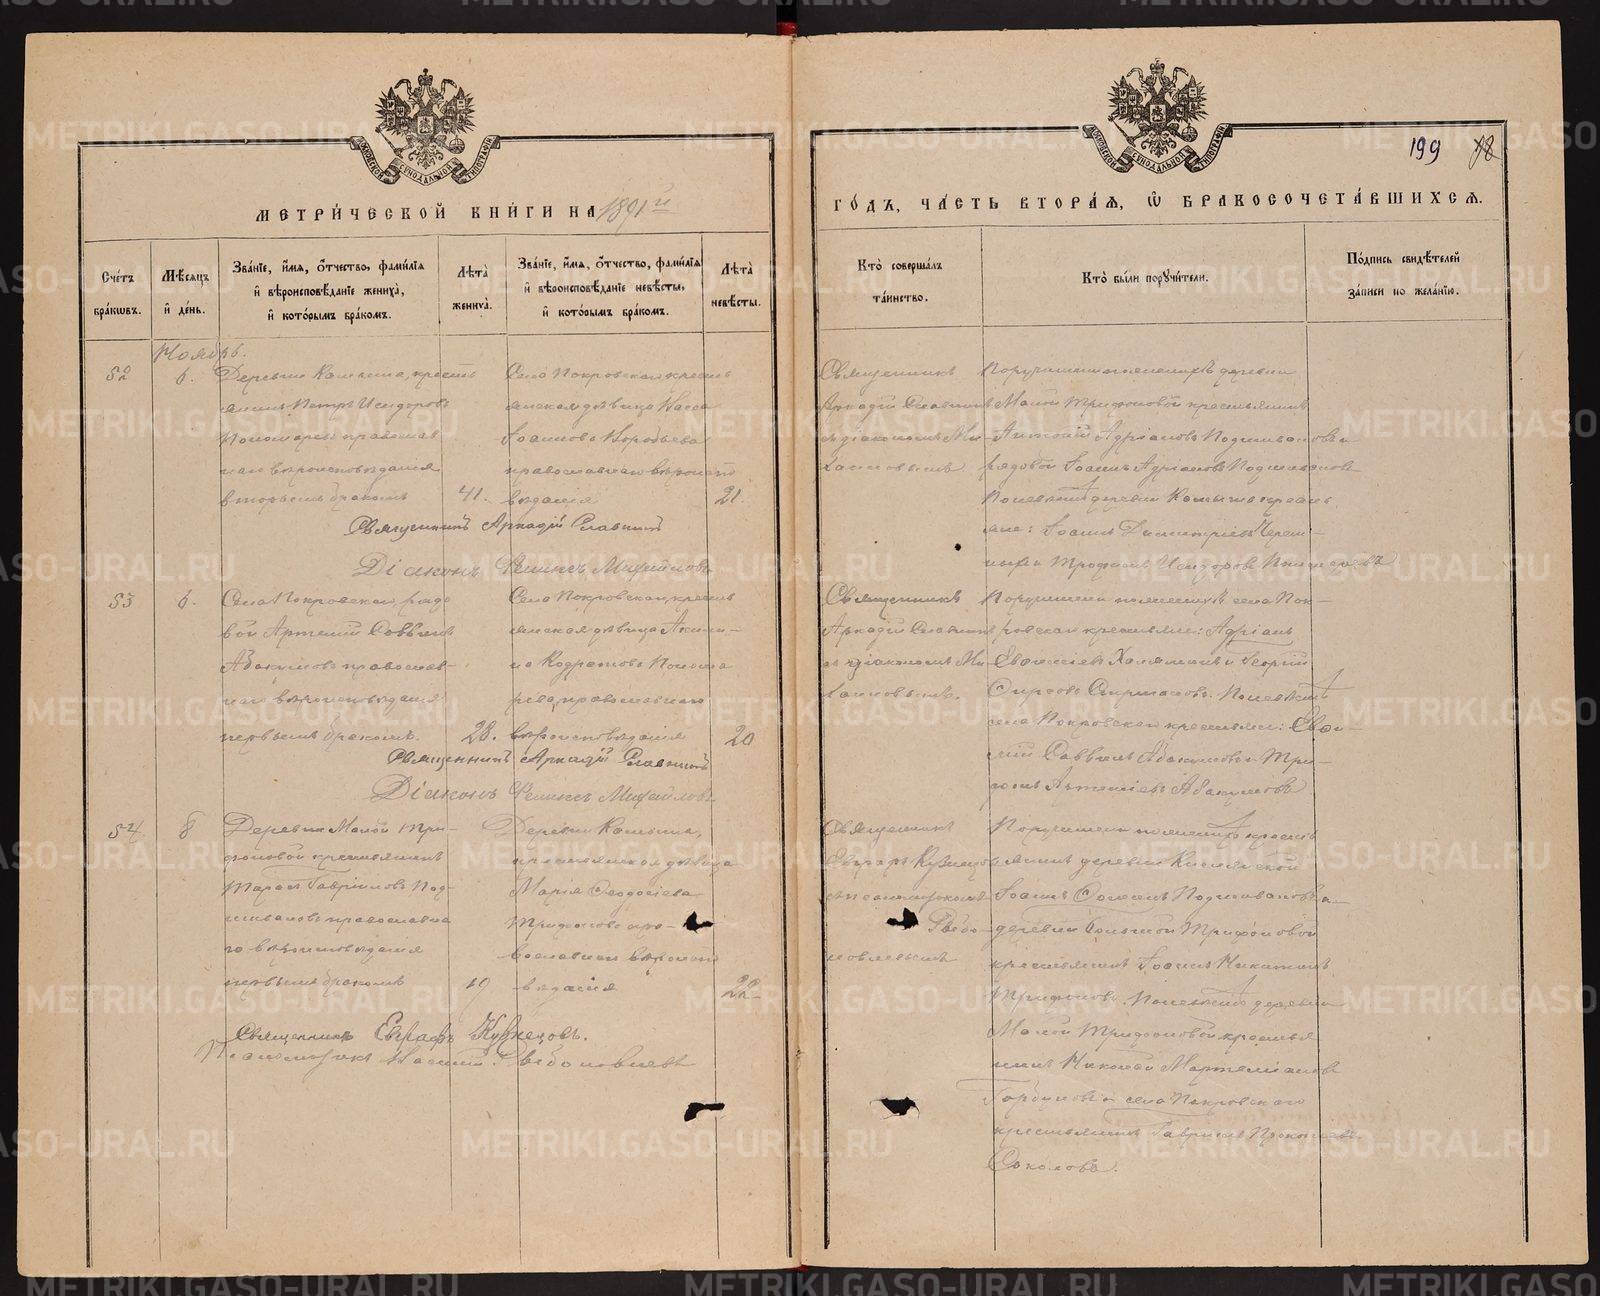 МОСКОВСКОЙ СѴНОДАЛЬНОЙ ТИПОГРАФІИ
МЕТРИ́ЧЕСКОЙ КНИ́ГИ НА 1891 й
Сче́тъ бра́кѡвъ.
Мѣ́сяцъ и҆ де́нь.
Зва́нїе, и҆́мѧ, ѻ҆́тчество, фами́лїѧ и҆ вѣроисповѣ́данїе жениха̀, и҆ кото́рымъ бра́комъ.
Лѣ́та жениха̀.
Зва́нїе, и҆́мѧ, ѻ҆́тчество, фами́лїѧ и҆ вѣроисповѣ́данїе невѣ́сты, и҆ кото́рымъ бра́комъ.
Лѣ́та невѣ́сты.
Ноябрь.
52
6.
Деревни Камыша, кресть
янинъ Петръ Исидоровъ
Пономаревъ православ
наго вѣроисповѣданія
вторымъ бракомъ
41.
Села Покровскаго кресть
янская дѣвица
Іоаннова Воробьева
православнаго вѣроиспо
вѣданія
21.
Священникъ Аркадій Славнинъ
Діаконъ Михайловъ
53
6.
Села Покровскаго рядо
вой Артемій Саввинъ
Абакумовъ православ-
наго вѣроисповѣданія
первымъ бракомъ.
28.
Села Покровскаго, кресть
янская дѣвица Акили-
на Кодратова Понома
рева, православнаго
вѣроисповѣданія
20
Священникъ Аркадій Славнинъ
Діаконъ Михайловъ
54
8
Деревни Малой Три-
фоновой крестьянинъ
Тарасъ Гавріиловъ Под-
шиваловъ православна
го вѣроисповѣданія
первымъ бракомъ
19
Деревни Камыша,
крестьянская дѣвица
Марія Ѳеодосіева
Трифонова пра-
вославнаго вѣроиспо
вѣданія
22
Священникъ Евграфъ Кузнецовъ.
Псаломщикъ
МОСКОВСКОЙ СѴНОДАЛЬНОЙ ТИПОГРАФІИ
199 78
ГО́ДЪ, ЧА́СТЬ ВТОРА́Ѧ, Ѽ БРАКОСОЧЕТА́ВШИХСѦ.
Кто̀ соверша́лъ та́инство.
Кто̀ бы́ли порꙋчи́тели.
По́дпись свидѣ́телей за́писи по жела́нїю.
Священникъ
Аркадій Славнинъ
съ діакономъ Ми-
хайловымъ
Поручители по женихѣ деревни
Малой Трифоновой крестьянинъ
Антоній Адріановъ Подшиваловъ и
рядовой Іоаннъ Адріановъ Подшиваловъ
По невѣстѣ деревни Камыша крестья
не: Іоаннъ Димитріевъ
и Трофимъ Исидоровъ Пономаревъ
Священникъ
Аркадій Славнинъ
съ діакономъ Ми-
хайловымъ.
Поручители по женихѣ села Пок-
ровскаго крестьяне: Адріанъ
и Георгій
По невѣстѣ
села Покровскаго крестьяне:
Саввинъ Абакумовъ и Три-
фонъ Артеміевъ Абакумовъ
Священникъ
Евграфъ Кузнецовъ
съ псаломщикомъ
Поручители по женихѣ кресть
янинъ деревни
Іоаннъ Подшиваловъ и
деревни Большой Трифоновой
крестьянинъ Іоаннъ Никитинъ
Трифоновъ. По невѣстѣ деревни
Малой Трифоновой крестья
нинъ Николай
Горбуновъ и села Покровскаго
крестьянинъ Гавріилъ Прокопьевъ
Соколовъ.
METRIKI.GASO-URAL.RU